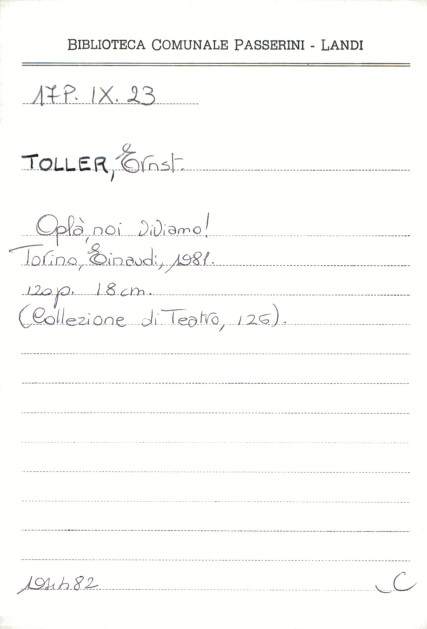 BIBLIOTECA COMUNALE PASSERINI - LANDI
17P. IX. 23
TOLLER, Ernst.
Oplà, noi viviamo!
Torino, Einaudi, 1981.
120p. 18cm.
(Collezione di Teatro, 126).
C